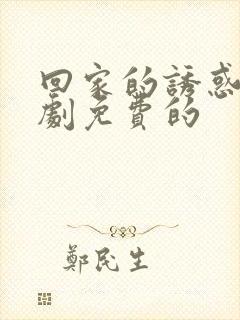 回家的誘惑
劇免費的
鄭民生